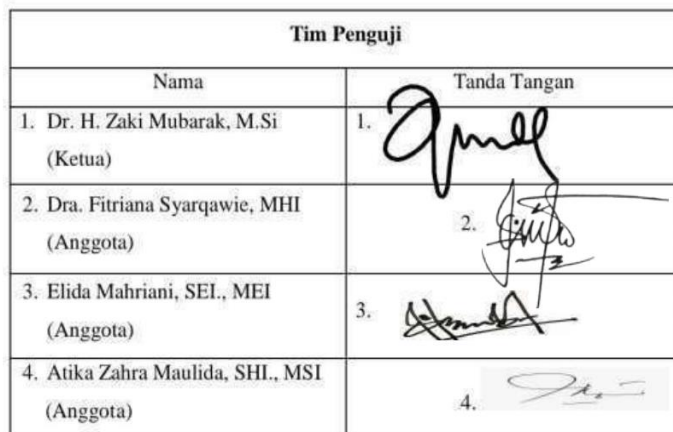 Tim Penguji
Nama Tanda Tangan
1. Dr. H. Zaki Mubarak, M.Si 1.
(Ketua)
2. Dra. Fitriana Syarqawie, MHI 2.
(Anggota)
3. Elida Mahriani, SEI., MEI 3.
(Anggota)
4. Atika Zahra Maulida, SHI., MSI 4.
(Anggota)